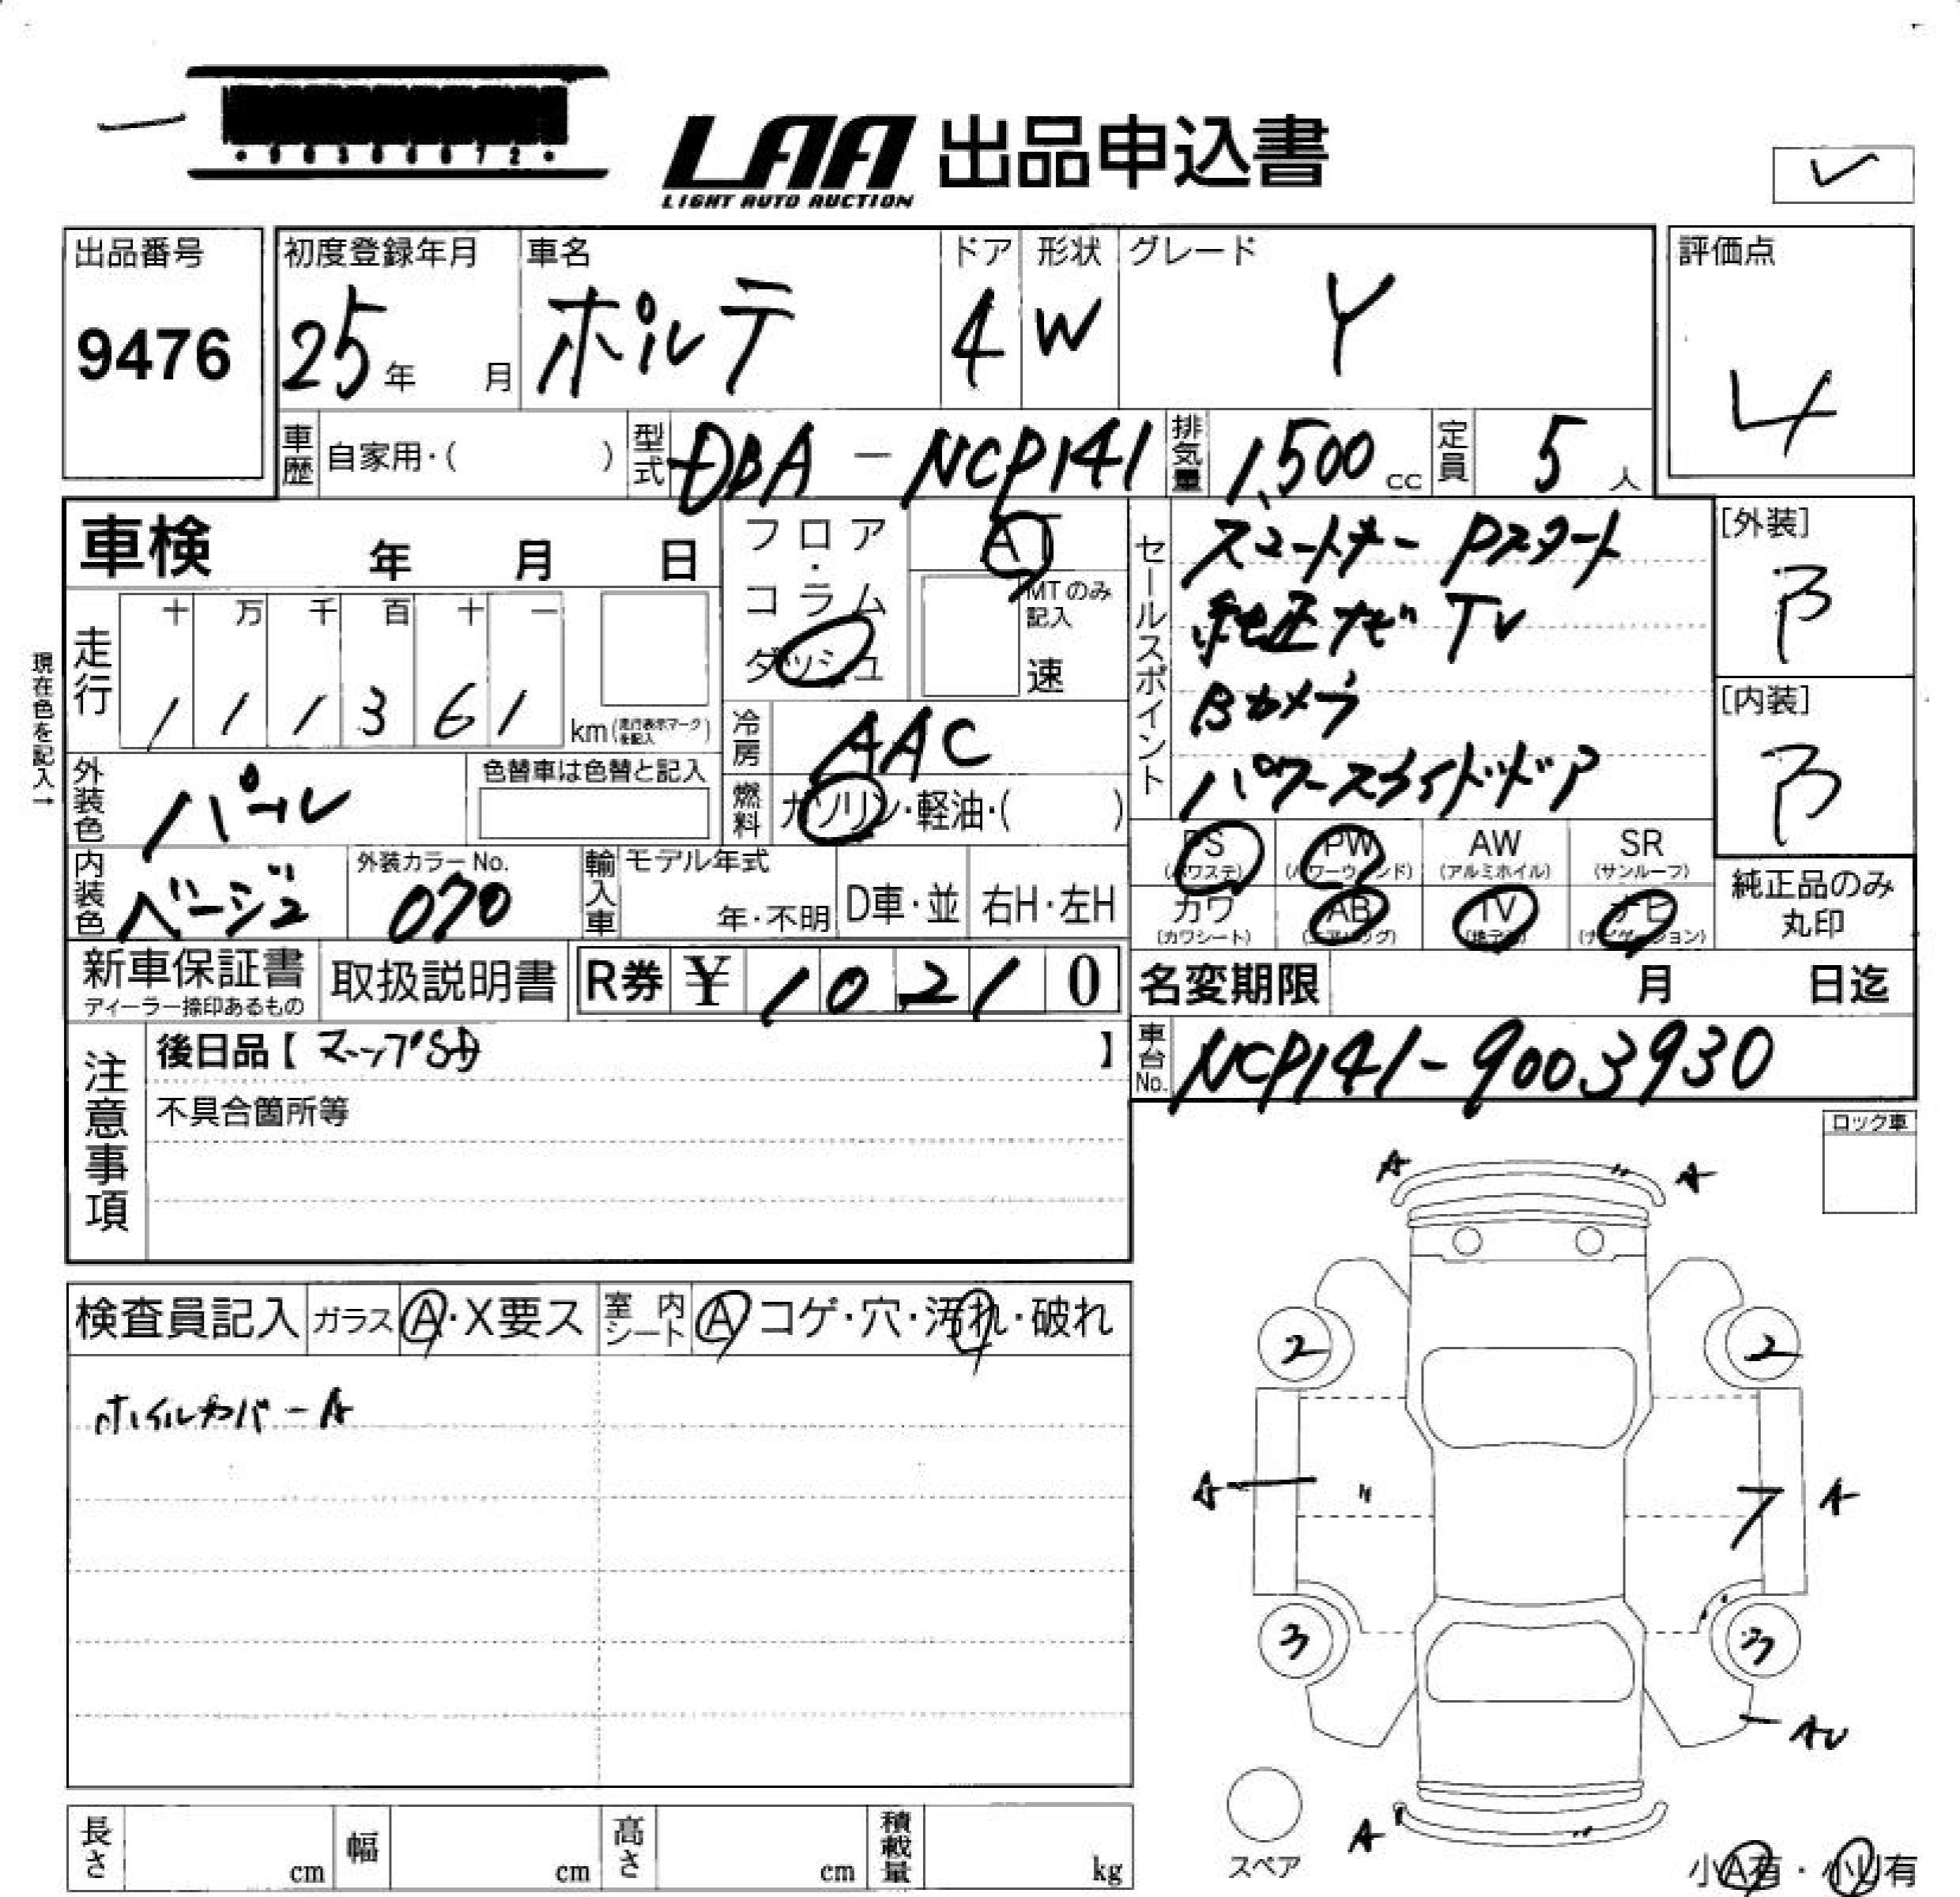 LAA 出品申込書
LIGHT AUTO AUCTION
出品番号
9476
初度登録年月
25年 月
車名
ポルテ
ドア
4
形状
W
グレード
Y
評価点
4
車歴 自家用・( )
型式 DBA-NCP141
排気量 1,500 cc
定員 5 人
車検 年 月 日
フロア・コラム
ダッシュ
AT
MTのみ記入
速
セールスポイント
スマートキー Pスタート
純正ナビ TV
Bカメラ
パワースライドドア
[外装]
B
[内装]
B
現在色を記入→
走行
十 万 千 百 十 一
1 1 1 3 6 1 km(走行表示マークを記入)
冷房 AAC
燃料 ガソリン・軽油・( )
外装色 パール
色替車は色替と記入
内装色 ベージュ
外装カラーNo.
070
輸入車 モデル年式
年・不明
D車・並
右H・左H
PS (パワステ)
PW (パワーウィンド)
AW (アルミホイル)
SR (サンルーフ)
カワ (カワシート)
AB (エアバッグ)
TV (地デジ)
ナビ (ナビゲーション)
純正品のみ
丸印
新車保証書
ディーラー捺印あるもの
取扱説明書
R券 ¥ 1 0 2 1 0
名変期限 月 日迄
車台No. NCP141-9003930
注意事項
後日品【 マップSD 】
不具合箇所等
ロック車
検査員記入 ガラス A・X要ス 室内シート A コゲ・穴・汚れ・破れ
ホイルカバーA
A A
2 2
A 〃 7 A
3 3
AU
A
スペア
長さ cm 幅 cm 高さ cm 積載量 kg
小A有・小U有